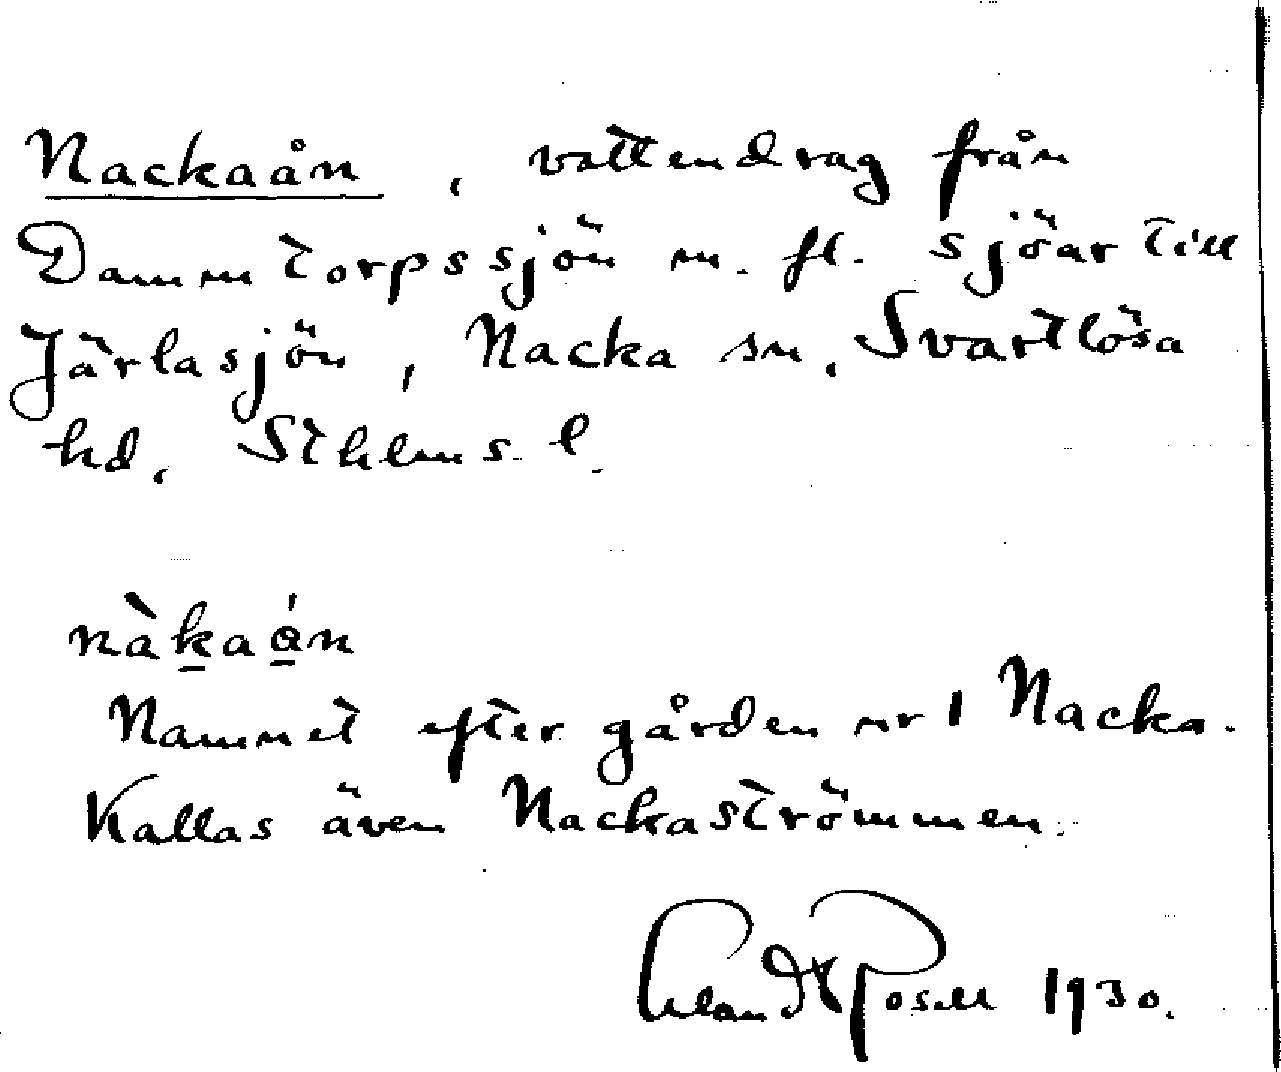 Nackaån, vattendrag från
Dammtorpssjön m. fl. sjöar till
Järlasjön, Nacka sn, Svartlösa
hd, Sthlms l.
nàk̲aǻ̲n
Namnet efter gården nr 1 Nacka.
Kallas även Nackaströmmen.
Erland Rosell 1930.